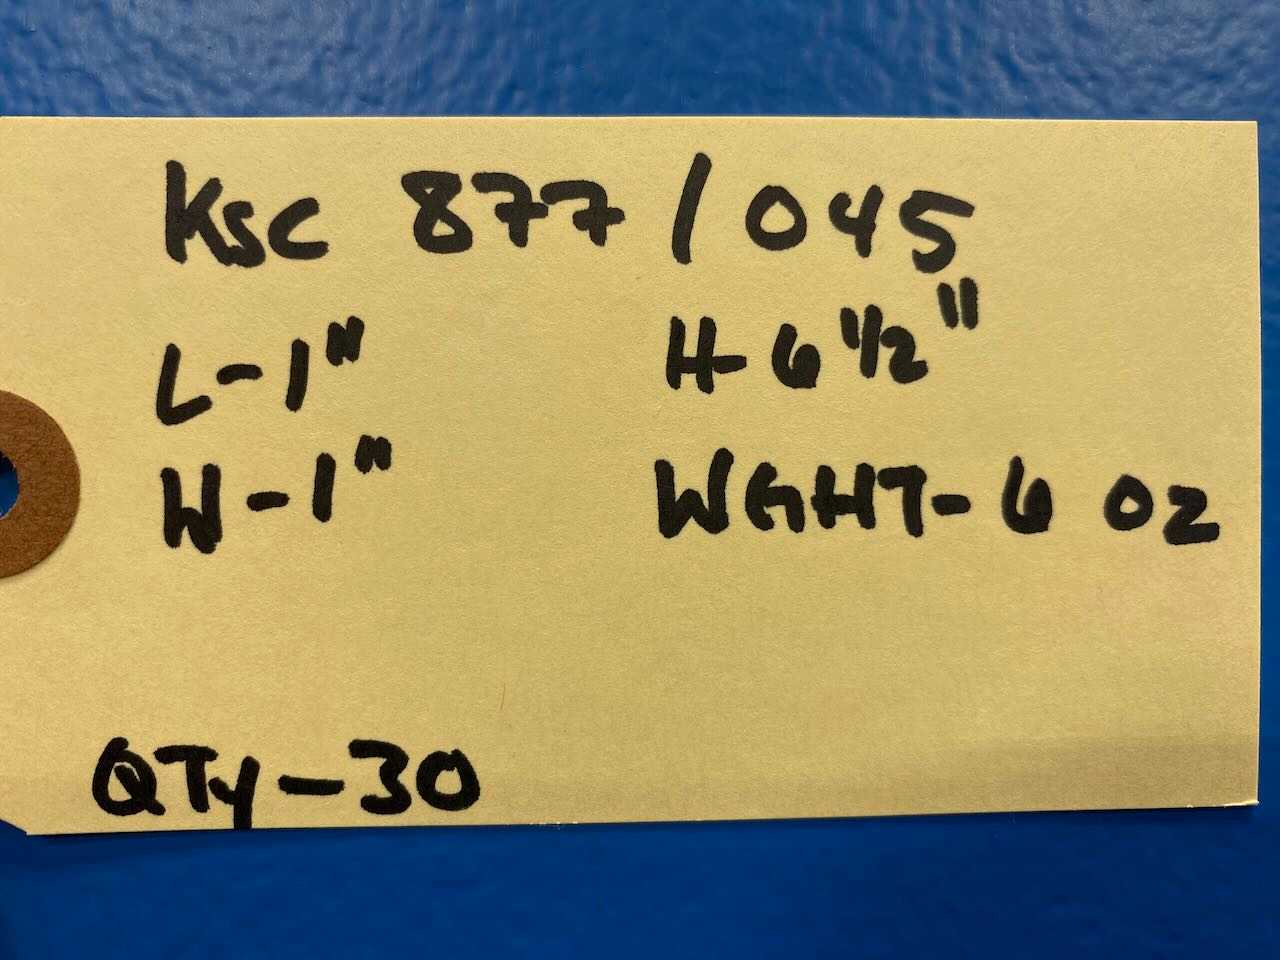 Ksc 877/045
L-1" H-6 1/2"
W-1" WGHT-6 oz
QTy-30